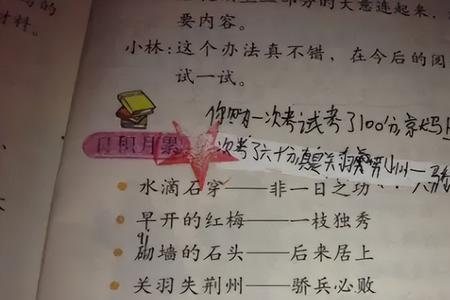 材料。
的
部分的大意连起来，
要内容。
小林：这个办法真不错，在今后的阅
试一试。
你有一次考试考了100分
日积月累
次考了六十分真是关羽
水滴石穿——非一日之功
早开的红梅——一枝独秀
qì
砌墙的石头——后来居上
关羽失荆州——骄兵必败